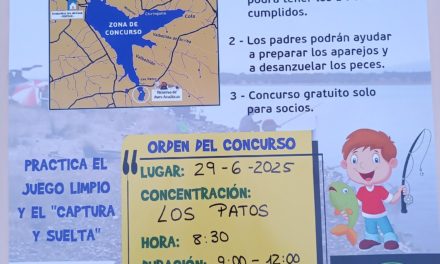 ZONA DE
CONCURSO
cumplidos.
2 - Los padres podrán ayudar
a preparar los aparejos y
a desanzuelar los peces.
3 - Concurso gratuito solo
para socios.
PRACTICA EL
JUEGO LIMPIO
Y EL "CAPTURA
Y SUELTA"
ORDEN DEL CONCURSO
LUGAR: 29-6-2025
CONCENTRACIÓN:
LOS PATOS
HORA: 8:30
DURACIÓN: 9:00 - 12:00